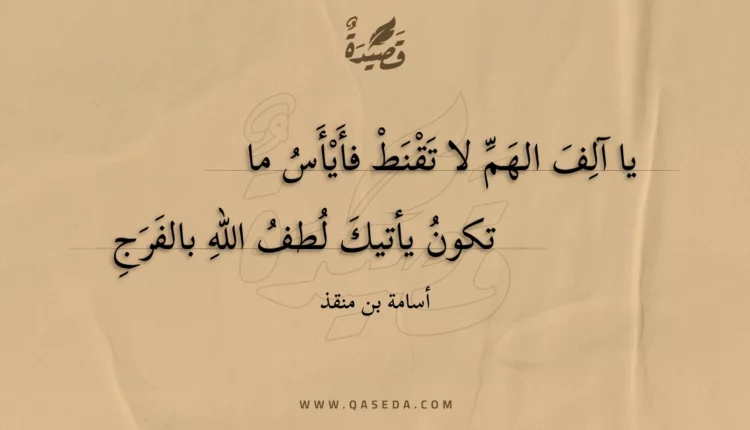 قَصِيْدَةٌ
يا آلِفَ الهَمِّ لا تَقْنَطْ فأَيْأَسُ ما
تكونُ يأتيكَ لُطفُ اللهِ بالفَرَجِ
أسامة بن منقذ
WWW.QASEDA.COM